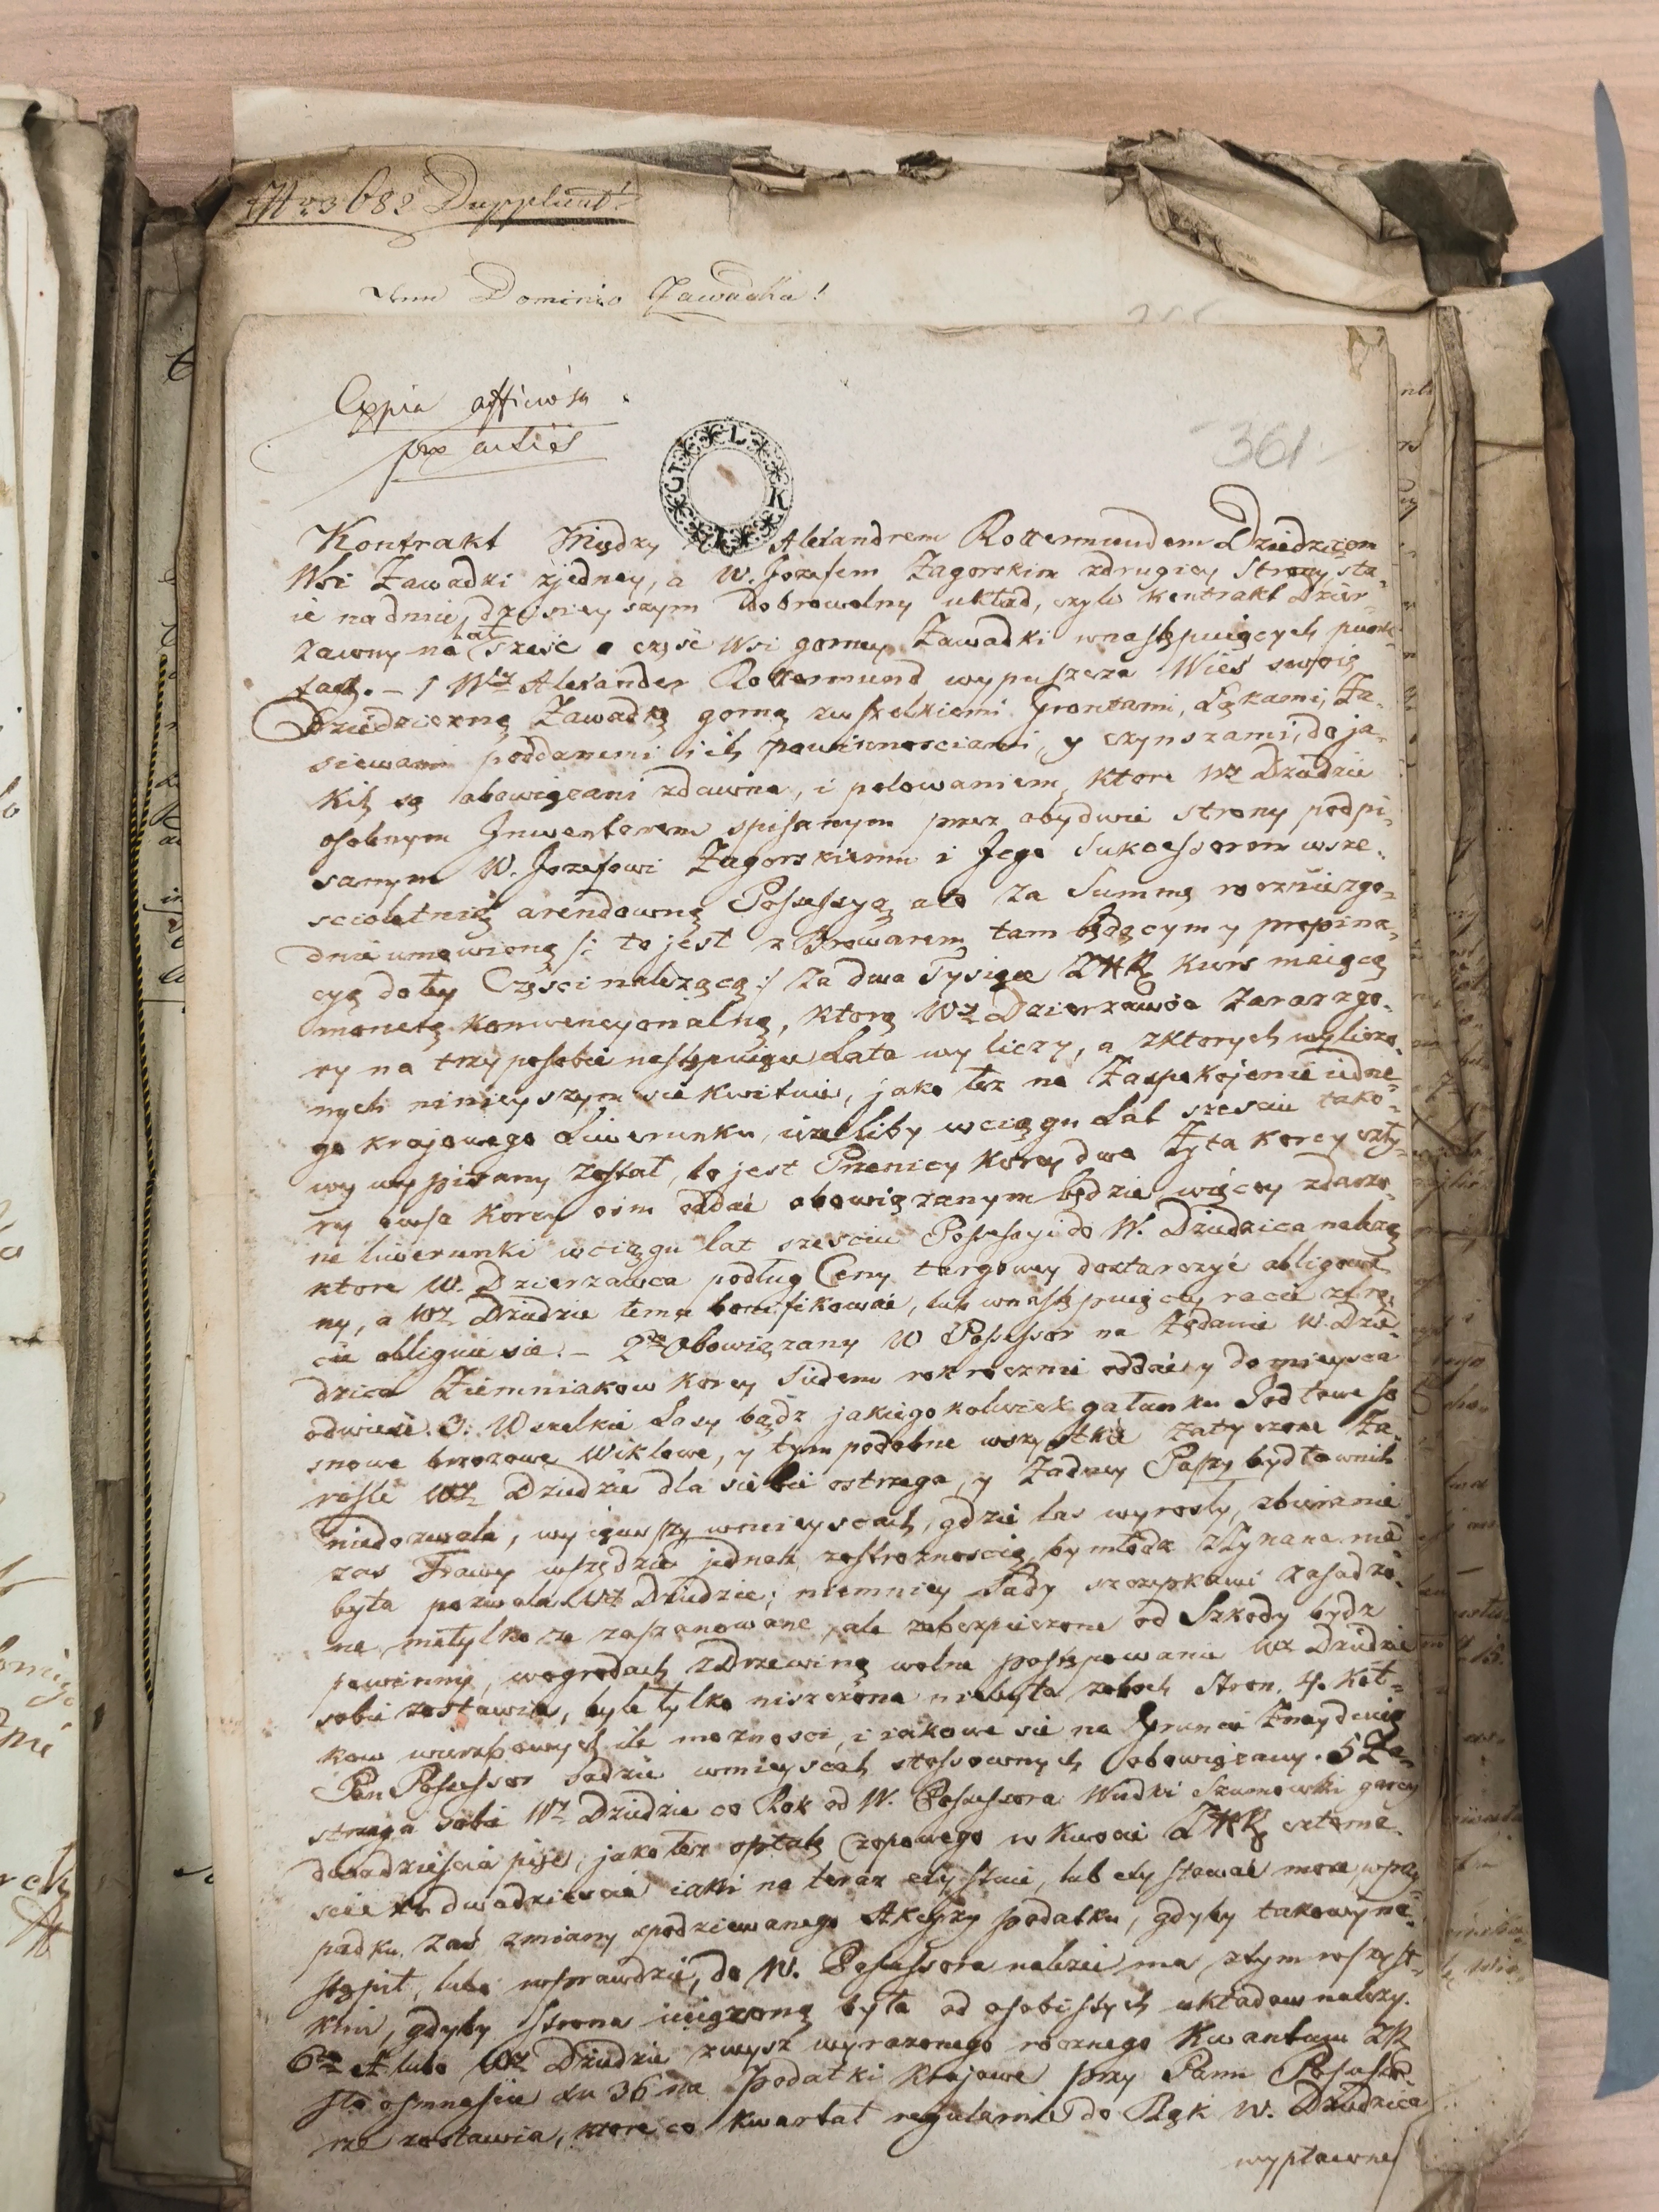 Dupplicat
Dominio Zawadka!
Coppia officiosa
pro actis
361
L K
Kontrakt Między Alexandrem Rottermundem Dziedzicem
Wsi Zawadki zjedney, a W. Jozefem Zagorskim zdrugiey Strony sta-
ie na dniu dzisieyszym dobrowolny układ, czyli Kontrakt Dzier-
zawny na lat sześć o część Wsi gorney Zawadki wnastępuiących punk-
tach. – 1 Wz Alexander Rottermund wypuszcza Wieś swoię
Dziedziczną Zawadkę gorną zwszelkiemi Grontami, Łąkami, Za-
siewami poddanemi ich powinnosciami, y czynszami, do ja-
kich są obowiązani zdawna, i polowaniem, ktore Wz Dziedzic
osobnym Inwentarem spisanym przez obydwie strony podpi-
sanym W. Jozefowi Zagorskiemu i Jego Sukcessorom wsze-
scioletnią arendowną Possessyą, ato za Summę rocznie zgo-
dnie umowioną /: to jest z Browarem tam będącym y propina-
cyą do tey Części należącą :/ za dwa Tysiące ZłR Kurs maiącą
monetą konwencyonalną, ktorą Wz Dzierzawca zaraz zgo-
ry na trzy posobie następuiące Lata wyliczy, a zktorych wyliczo-
nych ninieyszym sie kwituie, jako też na Zaspokojenie iedne-
go krajowego Liwerunku, ieżeliby wciągu Lat sześciu tako-
wy wypisany został, to jest Pszenicy Korcy dwa Żyta korcy czty-
ry owsa Korcy osm oddać obowiązanym będzie więcey zdarzo-
ne liwerunki wciągu lat sześciu Possessyi do W. Dziedzica należą
ktore W. Dzierzawca podług Ceny targowey dostarczyć obligowa-
ny, a Wz Dziedzic temu bonifikować, lub wnastępuiącey racie ztrą-
cić obliguie sie. – 2do Obowiązany W Possessor na Żądanie W. Dzie-
dzica Ziemniakow korcy Siedem rokrocznie oddać y do mieysca
odwieść. 3: Wszelkie Lasy bądź jakiegokolwiek gatunku Jodłowe so-
snowe brzozowe Wiklowe, y tym podobne wszystkie zatyczone Za-
rosle Wz Dziedzic dla siebie ostrzega, y Żadney Paszy bydła wnich
niedozwala, wyiąwszy wmieyscach, gdzie las wyrosły, zbieranie
zas Trawy wszędzie jednak zostrożnoscią by młodz zżynana nie
była pozwala Wz Dziedzic; niemniey Sady szczepkami zasadzo-
ne, nietylko że zaszanowane, ale zabezpieczone od Szkody bydź
powinny, wogrodach zDrzewiną wolne postępowanie Wz Dziedzic
sobie zostawia, byle tylko niszczona niebyła zoboch Stron. 4. Koł-
kow wierzbowych ile mozności, i iakowe sie na Gruncie Znaydować
Pan Possessor Sadzić wmieyscach stossownych obowiązany. 5 Za-
strzega sobie Wz Dziedzic co Rok od W. Possessora Wudki Szumowki garcy
dwadzieścia pięć, jako też opłatę Czopowego w kwocie ZłR czterna-
scie xr dwadziescia iaki na teraz exystuie, lub exystować może, wprzy-
padku zaś zmiany spodziewanego Akcyzy podatku, gdyby takowy na-
stąpił, lubo wsprawdzie do W. Possessora należeć ma, ztym wszyst-
kim, gdyby Strona uciążoną była od osobistych układow należy.
6to A lubo Wz Dziedzic zwysz wyrażonego rocznego Kwantum ZR
sto osmnaście xr 36 na podatki krajowe przy Panu Possesso-
rze zostawia, ktore co kwartał regularnie do Rąk W. Dziedzica
wypłacone